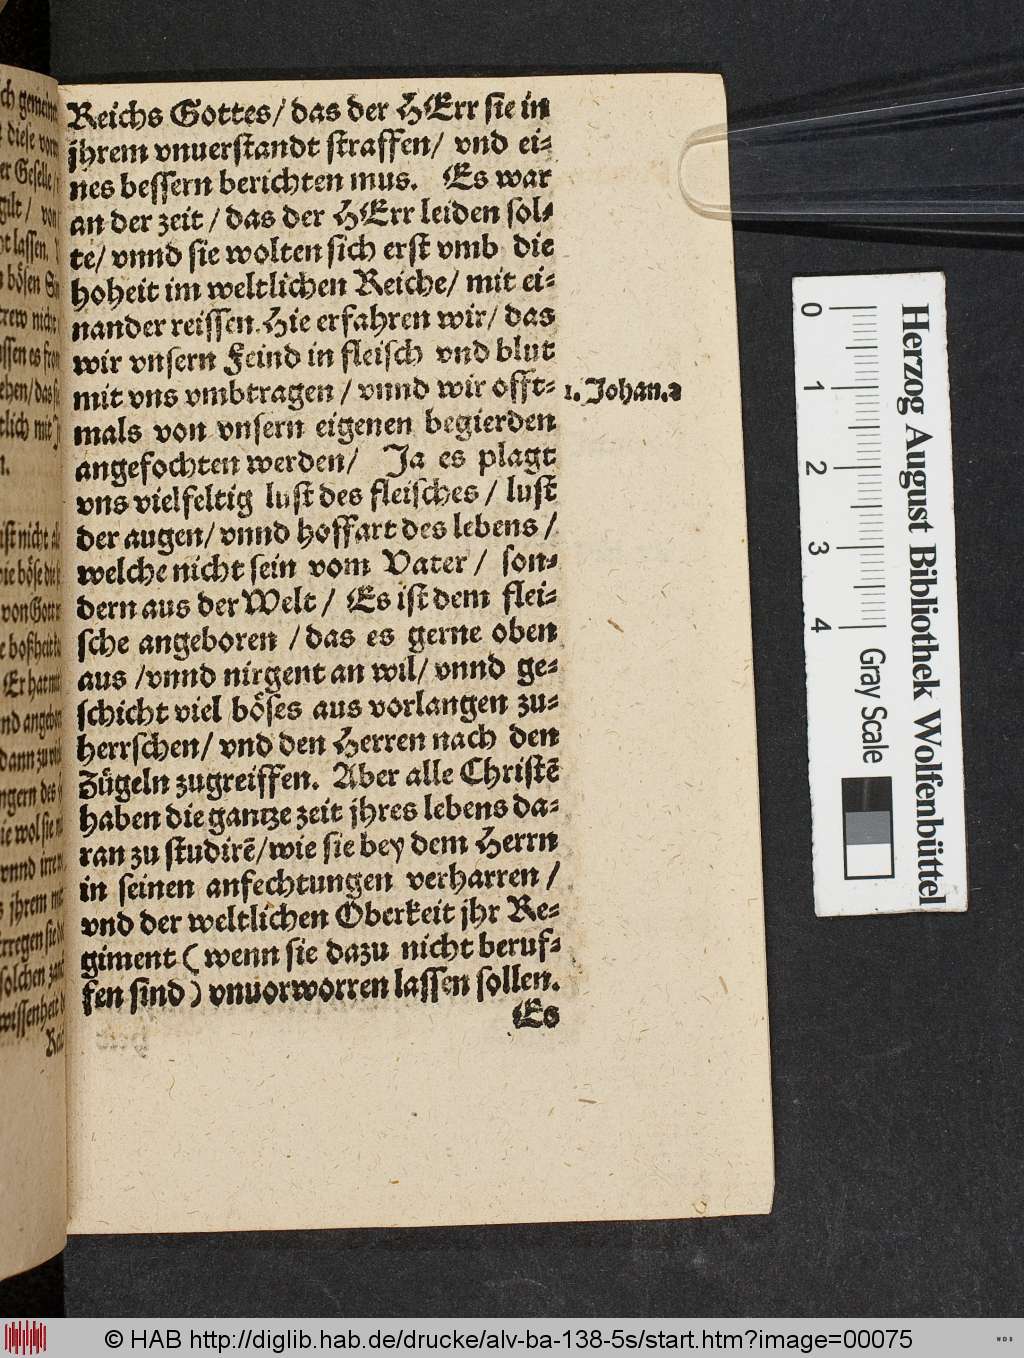 Reichs Gottes/ das der HErr sie in
jhrem vnuerstandt straffen/ vnd ei⸗
nes bessern berichten mus. Es war
an der zeit / das der HErr leiden sol⸗
te/ vnnd sie wolten sich erst vmb die
hoheit im weltlichen Reiche/ mit ei⸗
nander reissen. Hie erfahren wir/ das
wir vnsern Feind in fleisch vnd blut
mit vns vmbtragen / vnnd wir offt⸗
1. Johan. 2
mals von vnsern eigenen begierden
angefochten werden/ Ja es plagt
vns vielfeltig lust des fleisches / lust
der augen/ vnnd hoffart des lebens /
welche nicht sein vom Vater / son⸗
dern aus der Welt / Es ist dem flei⸗
sche angeboren / das es gerne oben
aus /vnnd nirgent an wil/ vnnd ge⸗
schicht viel böses aus vorlangen zu⸗
herrschen/ vnd den Herren nach den
Zügeln zugreiffen. Aber alle Christē
haben die gantze zeit jhres lebens da⸗
ran zu studirē/wie sie bey dem Herrn
in seinen anfechtungen verharren /
vnd der weltlichen Oberkeit jhr Re⸗
giment ( wenn sie dazu nicht beruf⸗
fen sind ) vnuorworren lassen sollen.
Es
0 1 2 3 4
Gray Scale
Herzog August Bibliothek Wolfenbüttel
© HAB http://diglib.hab.de/drucke/alv-ba-138-5s/start.htm?image=00075